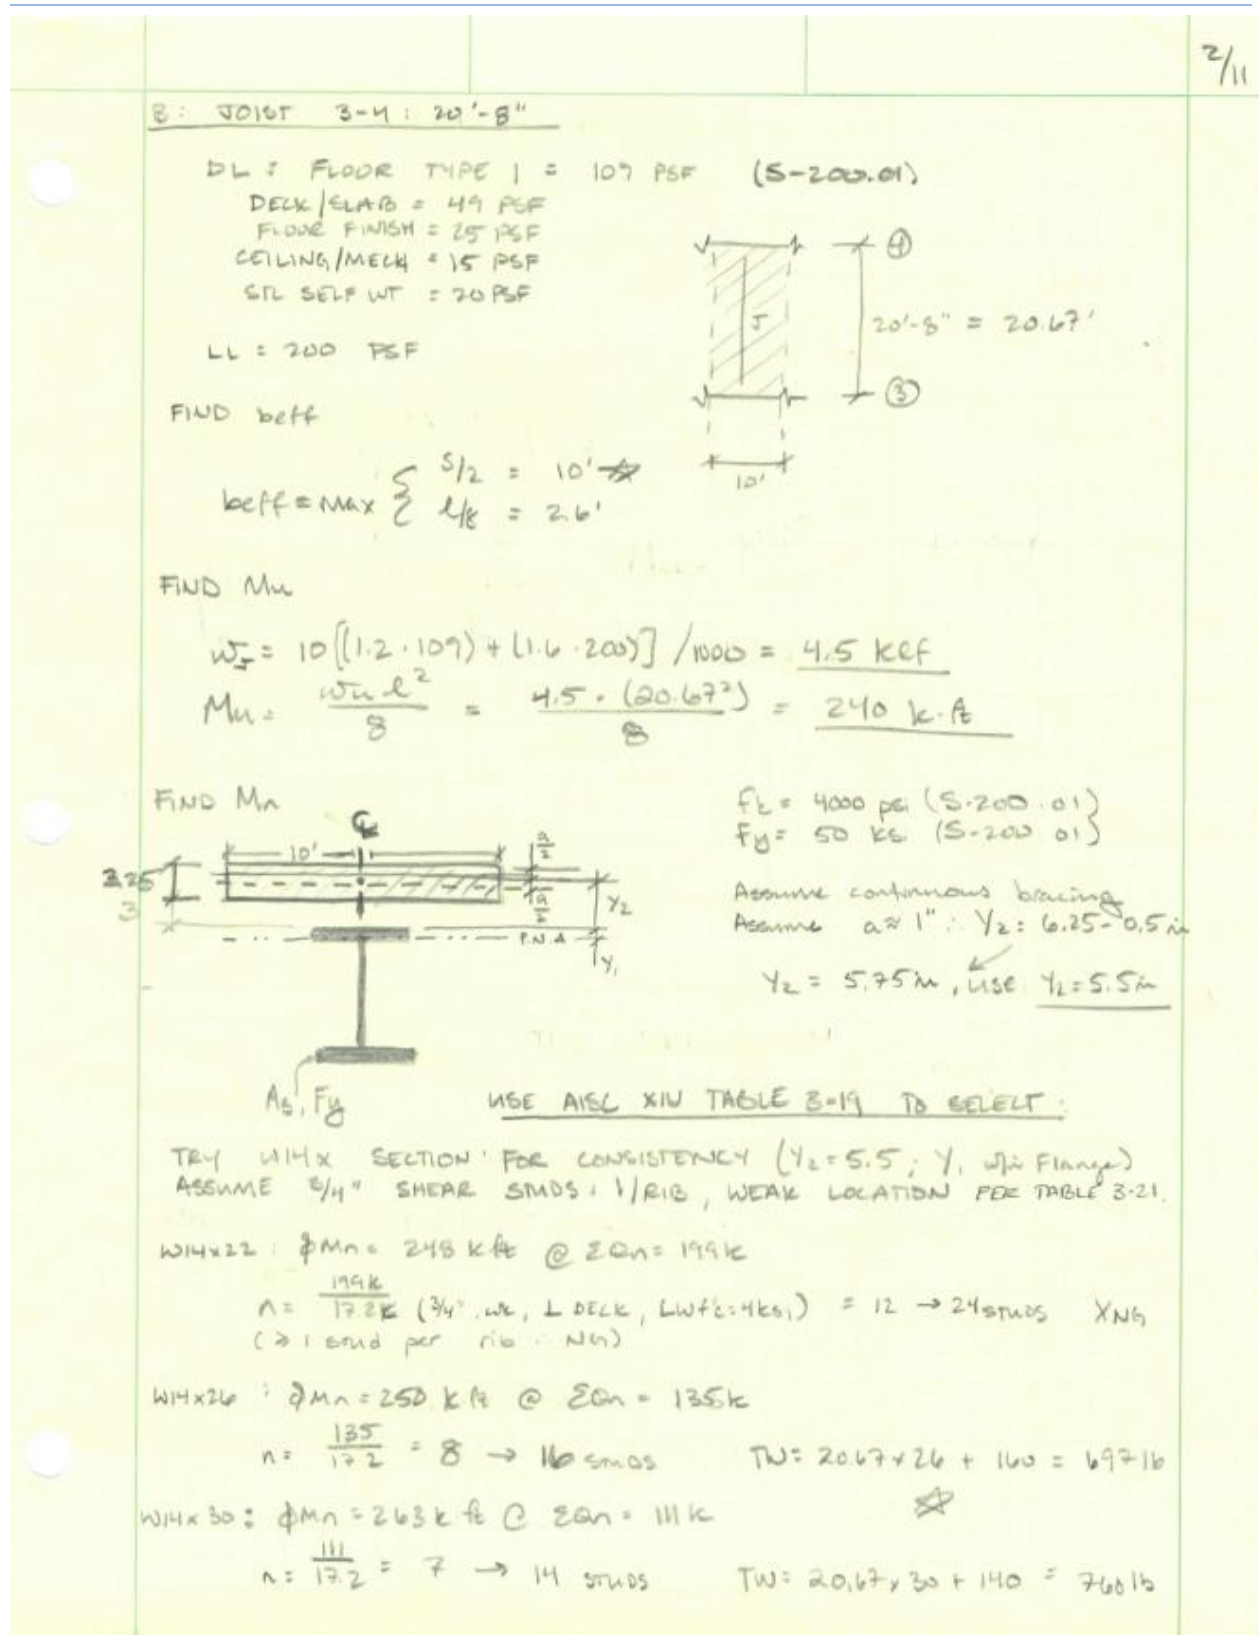 2/11
B: JOIST 3-4: 20'-8"
DL: FLOOR TYPE 1 = 109 PSF (S-200.01)
DECK/SLAB = 49 PSF
FLOOR FINISH = 25 PSF
CEILING/MECH = 15 PSF
STL SELF WT = 20 PSF
LL = 200 PSF
4
J
20'-8" = 20.67'
3
10'
FIND beff
beff = max { S/2 = 10'
l/8 = 2.6'
FIND Mu
= 10[(1.2 · 109) + (1.6 · 200)] /1000 = 4.5 klf
Mu = wu l² / 8 = 4.5 · (20.67²) / 8 = 240 k·ft
FIND Mn
f'c = 4000 psi (S-200.01)
Fy = 50 ksi (S-200.01)
CL
10'
a/2
a/2
3.25
3
Y2
P.N.A
Y1
Assume continuous bracing
Assume a ≈ 1" ∴ Y2 = 6.25 - 0.5 in
Y2 = 5.75 in, use Y2 = 5.5 in
As, Fy
USE AISC XIV TABLE 3-19 TO SELECT:
TRY W14x SECTION FOR CONSISTENCY (Y2 = 5.5; Y1 w/in Flange)
ASSUME 3/4" SHEAR STUDS: 1/RIB, WEAK LOCATION PER TABLE 3-21.
W14x22: ϕMn = 248 k ft @ ΣQn = 199k
n = 199k / 17.2k (3/4", wk, ⊥ DECK, LW f'c=4ksi) = 12 → 24 STUDS X NG
(> 1 stud per rib ∴ NG)
W14x26: ϕMn = 250 k ft @ ΣQn = 135k
n = 135 / 17.2 = 8 → 16 STUDS TW = 20.67 x 26 + 160 = 697 lb
W14x30: ϕMn = 263 k ft @ ΣQn = 111k
n = 111 / 17.2 = 7 → 14 STUDS TW = 20.67 x 30 + 140 = 760 lb